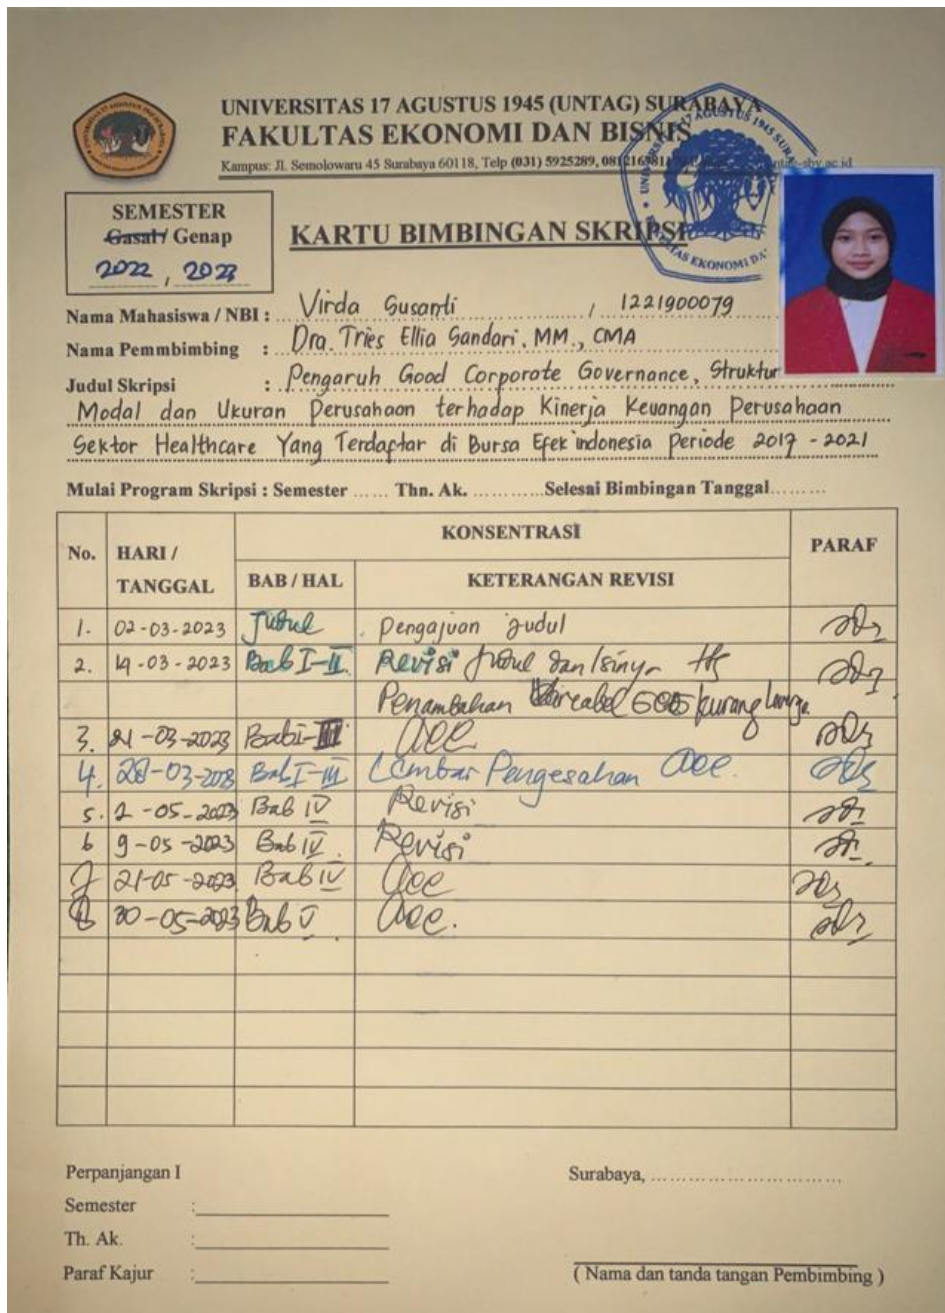 UNIVERSITAS 17 AGUSTUS 1945 (UNTAG) SURABAYA
FAKULTAS EKONOMI DAN BISNIS
Kampus: Jl. Semolowaru 45 Surabaya 60118, Telp (031) 5925289,
SEMESTER
Gasal / Genap
2022 , 2023
KARTU BIMBINGAN SKRIPSI
Nama Mahasiswa / NBI : Virda Susanti / 1221900079
Nama Pemmbimbing : Dra. Tries Ellia Sandari, MM., CMA
Judul Skripsi : Pengaruh Good Corporate Governance, Struktur
Modal dan Ukuran Perusahaan terhadap Kinerja Keuangan Perusahaan
Sektor Healthcare Yang Terdaftar di Bursa Efek indonesia Periode 2017 - 2021
Mulai Program Skripsi : Semester ...... Thn. Ak. ............Selesai Bimbingan Tanggal.........
No. HARI / TANGGAL KONSENTRASI PARAF
BAB / HAL KETERANGAN REVISI
1. 02-03-2023 Judul Pengajuan judul
2. 14-03-2023 Bab I-II Revisi Judul dan isinya
Penambahan kurang
3. 21-03-2023 Bab I-III acc
4. 28-03-2023 Bab I-III Lembar Pengesahan acc.
5. 2-05-2023 Bab IV Revisi
6 9-05-2023 Bab IV. Revisi
7 21-05-2023 Bab IV acc
8 30-05-2023 Bab V acc.
Perpanjangan I
Semester :
Th. Ak. :
Paraf Kajur :
Surabaya, ..............................
( Nama dan tanda tangan Pembimbing )